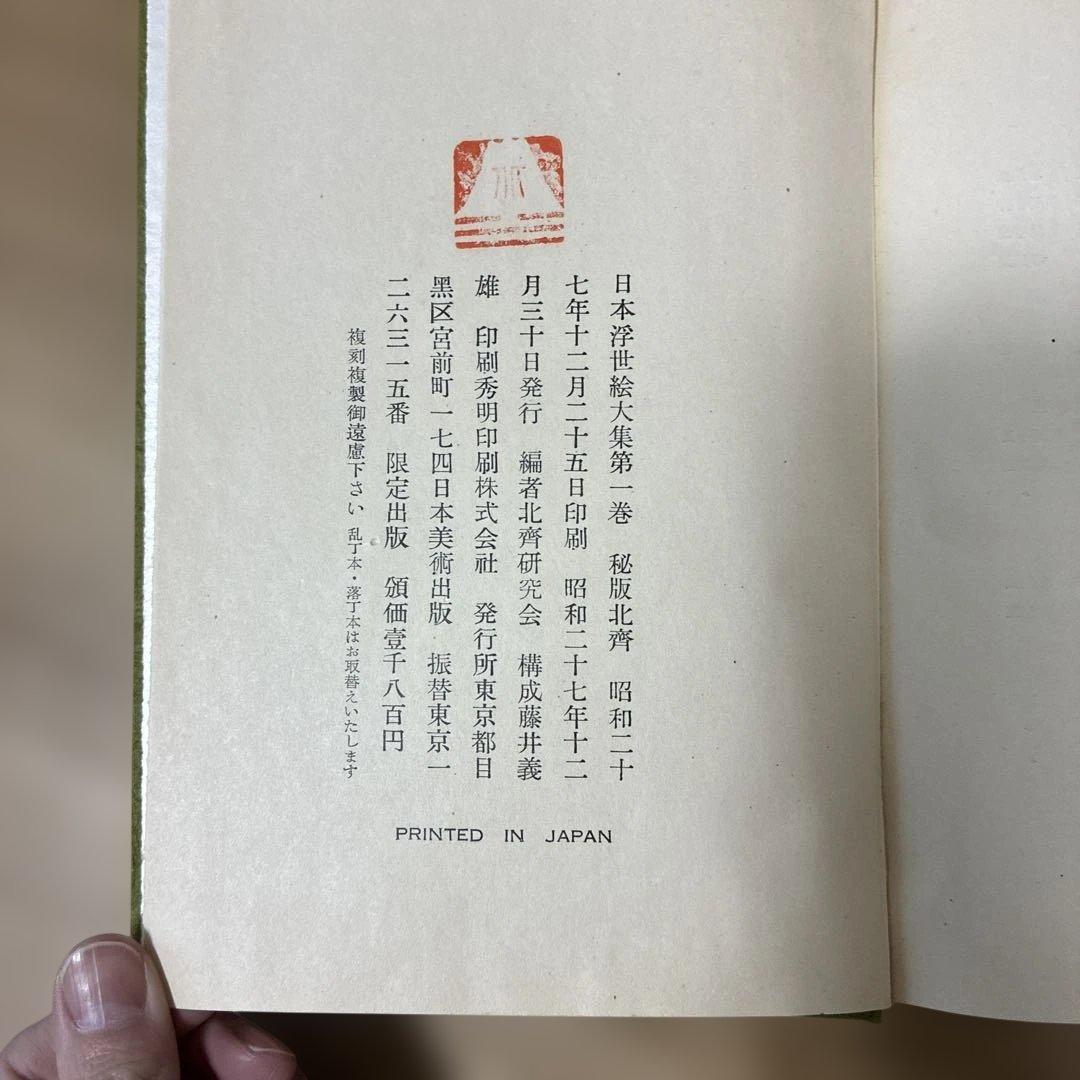 日本浮世絵大集第一巻 秘版北齊 昭和二十
七年十二月二十五日印刷 昭和二十七年十二
月三十日発行 編者北齊研究会 構成藤井義
雄 印刷秀明印刷株式会社 発行所東京都目
黒区宮前町一七四日本美術出版 振替東京一
二六三一五番 限定出版 頒価壹千八百円
複刻複製御遠慮下さい 乱丁本・落丁本はお取替えいたします
PRINTED IN JAPAN